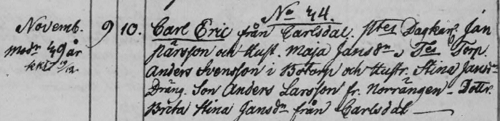 No 44.
Novemb. 9 10. Carl Eric från Carlsdal. Dagkarl Jan
modn 49 år Larsson och Hust. Maja Jansdr Torp.
Anders Svensson i Botorp och Hustr. Stina Jansdr
Dräng. Son Anders Larsson fr. Norrängen - Dottr.
Brita Stina Jansdr från Carlsdal